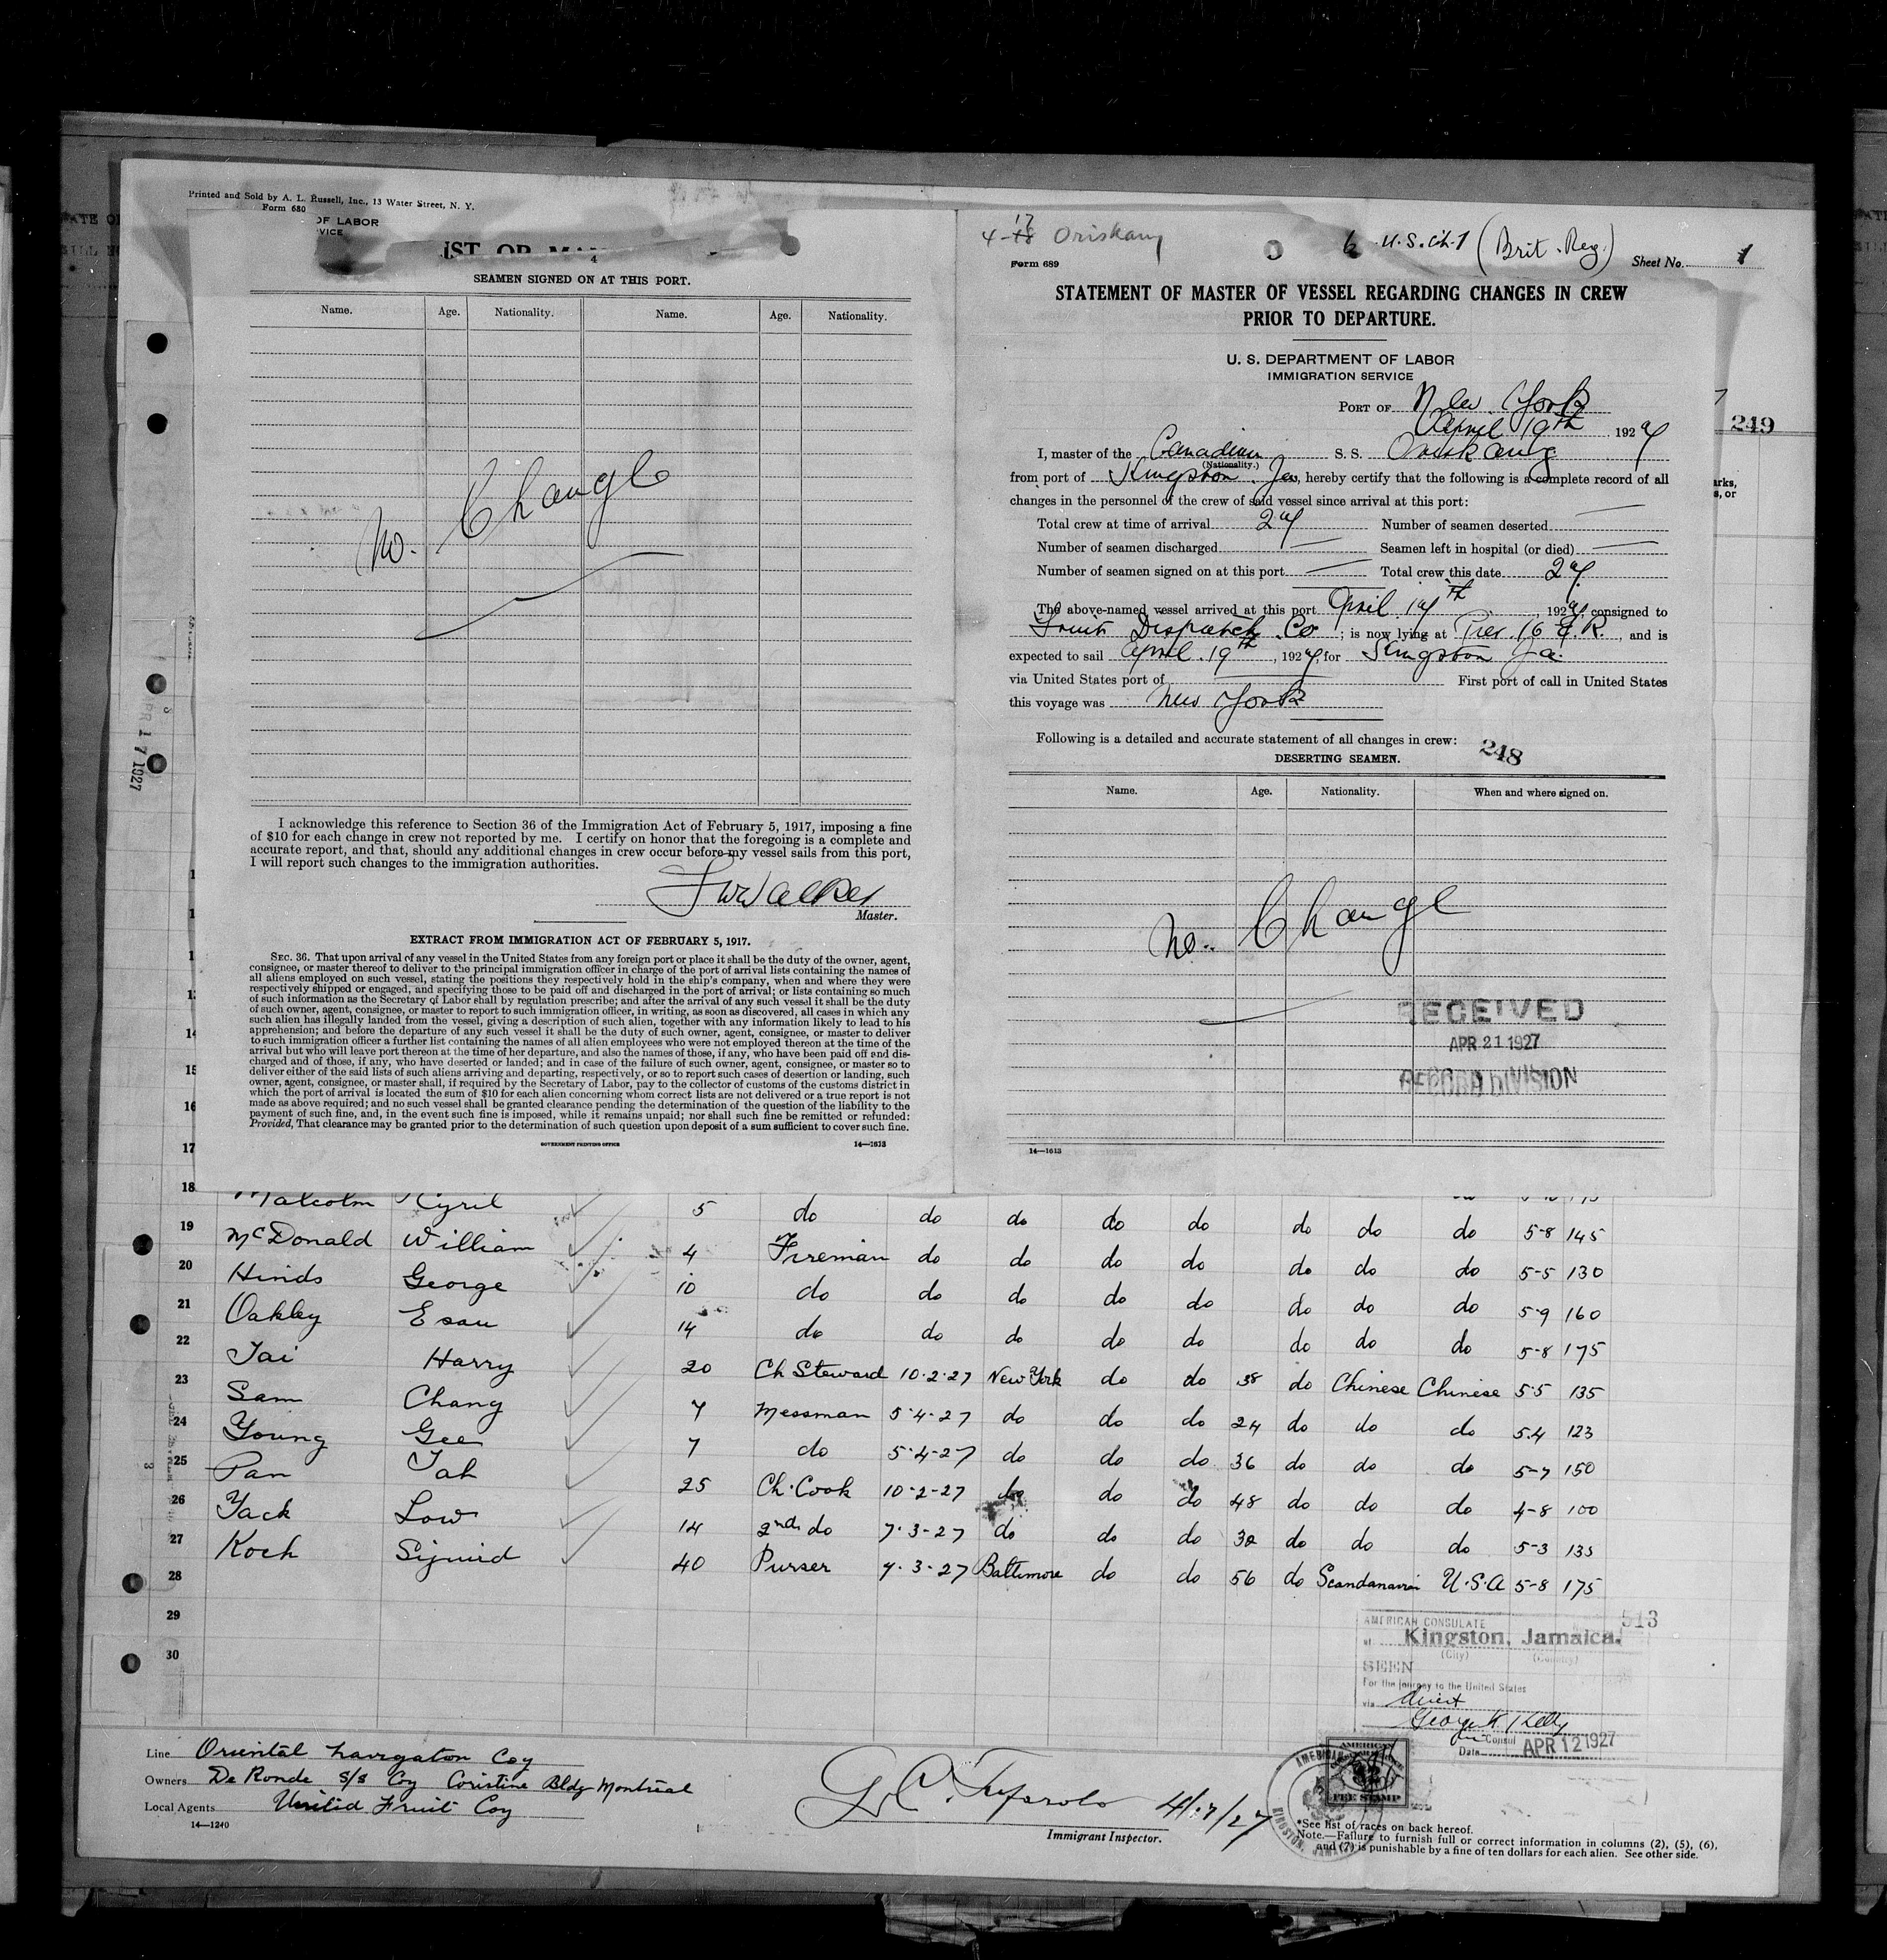 Printed and Sold by A. L. Russell, Inc., 13 Water Street, N. Y.
Form 680
OF LABOR
VICE
4
SEAMEN SIGNED ON AT THIS PORT.
Name. Age. Nationality. Name. Age. Nationality.
No. Change
I acknowledge this reference to Section 36 of the Immigration Act of February 5, 1917, imposing a fine
of $10 for each change in crew not reported by me. I certify on honor that the foregoing is a complete and
accurate report, and that, should any additional changes in crew occur before my vessel sails from this port,
I will report such changes to the immigration authorities.
Walker
Master.
EXTRACT FROM IMMIGRATION ACT OF FEBRUARY 5, 1917.
SEC. 36. That upon arrival of any vessel in the United States from any foreign port or place it shall be the duty of the owner, agent,
consignee, or master thereof to deliver to the principal immigration officer in charge of the port of arrival lists containing the names of
all aliens employed on such vessel, stating the positions they respectively hold in the ship's company, when and where they were
respectively shipped or engaged, and specifying those to be paid off and discharged in the port of arrival; or lists containing so much
of such information as the Secretary of Labor shall by regulation prescribe; and after the arrival of any such vessel it shall be the duty
of such owner, agent, consignee, or master to report to such immigration officer, in writing, as soon as discovered, all cases in which any
such alien has illegally landed from the vessel, giving a description of such alien, together with any information likely to lead to his
apprehension; and before the departure of any such vessel it shall be the duty of such owner, agent, consignee, or master to deliver
to such immigration officer a further list containing the names of all alien employees who were not employed thereon at the time of the
arrival but who will leave port thereon at the time of her departure, and also the names of those, if any, who have been paid off and dis-
charged and of those, if any, who have deserted or landed; and in case of the failure of such owner, agent, consignee, or master so to
deliver either of the said lists of such aliens arriving and departing, respectively, or so to report such cases of desertion or landing, such
owner, agent, consignee, or master shall, if required by the Secretary of Labor, pay to the collector of customs of the customs district in
which the port of arrival is located the sum of $10 for each alien concerning whom correct lists are not delivered or a true report is not
made as above required; and no such vessel shall be granted clearance pending the determination of the question of the liability to the
payment of such fine, and, in the event such fine is imposed, while it remains unpaid; nor shall such fine be remitted or refunded:
Provided, That clearance may be granted prior to the determination of such question upon deposit of a sum sufficient to cover such fine.
GOVERNMENT PRINTING OFFICE 14—1613
17
4-18 Oriskany 6 U.S. (Brit. Reg.) Sheet No. 1
Form 689
STATEMENT OF MASTER OF VESSEL REGARDING CHANGES IN CREW
PRIOR TO DEPARTURE.
U. S. DEPARTMENT OF LABOR
IMMIGRATION SERVICE
PORT OF New York
April 19th 1927
I, master of the Canadian S. S. Oriskany
(Nationality.)
from port of Kingston Ja, hereby certify that the following is a complete record of all
changes in the personnel of the crew of said vessel since arrival at this port:
Total crew at time of arrival 27 Number of seamen deserted —
Number of seamen discharged — Seamen left in hospital (or died) —
Number of seamen signed on at this port — Total crew this date 27
The above-named vessel arrived at this port April 17th, 1927, consigned to
Fruit Dispatch Co; is now lying at Pier 16 E.R., and is
expected to sail April 19th, 1927, for Kingston Ja.
via United States port of First port of call in United States
this voyage was New York
Following is a detailed and accurate statement of all changes in crew:
248
DESERTING SEAMEN.
Name. Age. Nationality. When and where signed on.
No. Change
RECEIVED
APR 21 1927
RECORD DIVISION
14—1613
249
arks,
s, or
APR 17 1927
14
15
16
17
18 Malcolm Cyril 5 do do do do do do do do 5-8 145
19 McDonald William 4 Fireman do do do do do do do 5-5 130
20 Hinds George 10 do do do do do do do do 5-9 160
21 Oakley Esau 14 do do do do do do do do 5-8 175
22 Tai Harry 20 Ch Steward 10-2-27 New York do do 38 do Chinese Chinese 5-5 135
23 Sam Chang 7 Messman 5-4-27 do do do 24 do do do 5.4 123
24 Young Gee 7 do 5-4-27 do do do 36 do do do 5-7 150
25 Pan Tah 25 Ch. Cook 10-2-27 do do do 48 do do do 4-8 100
26 Yack Low 14 2nd do 7-3-27 do do do 32 do do do 5-3 135
27 Koch Sigurd 40 Purser 7-3-27 Baltimore do do 56 do Scandanavian U.S.A 5-8 175
28
29
30
513
AMERICAN CONSULATE
at Kingston, Jamaica.
(City) (Country)
SEEN
For the journey to the United States
via direct
Consul
Date APR 12 1927
AMERICAN
FEE STAMP
Line Oriental Navigation Coy
Owners De Ronde S/S Coy Coristine Bldg Montreal
Local Agents United Fruit Coy
14—1240
4/17/27
Immigrant Inspector.
*See list of races on back hereof.
Note.—Failure to furnish full or correct information in columns (2), (5), (6),
and (7) is punishable by a fine of ten dollars for each alien. See other side.